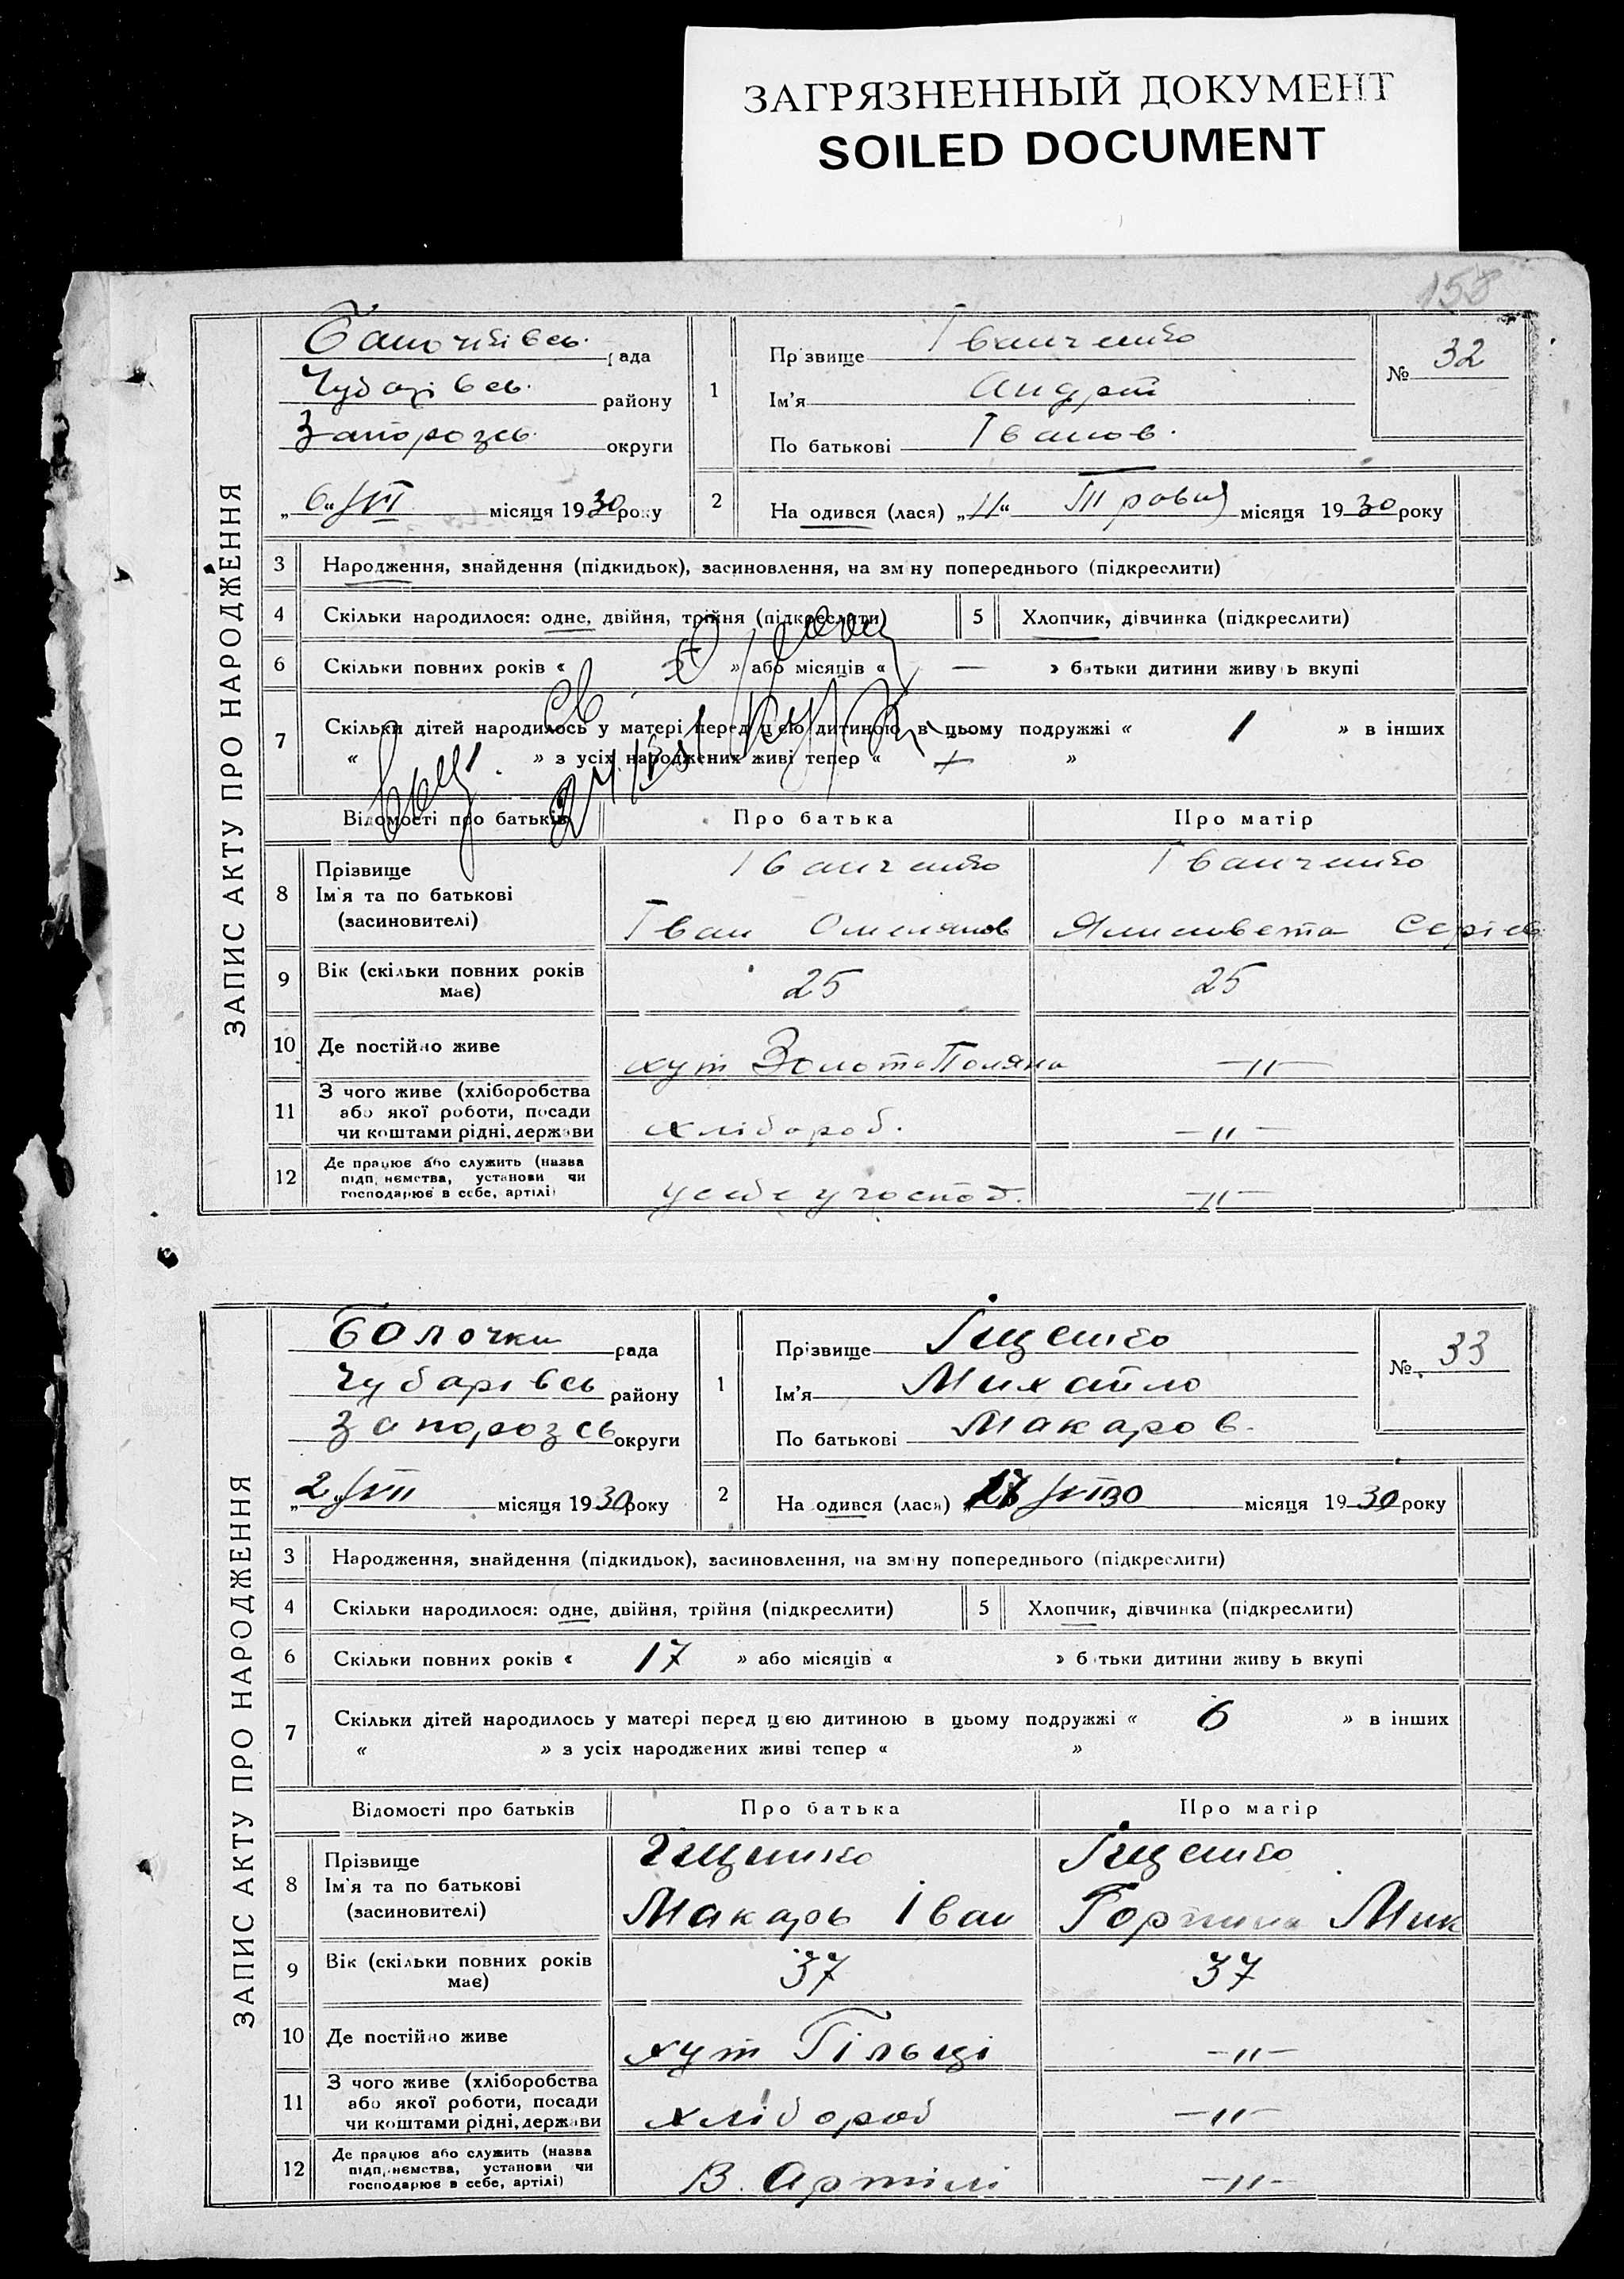 ЗАГРЯЗНЕННЫЙ ДОКУМЕНТ
SOILED DOCUMENT
ЗАПИС АКТУ ПРО НАРОДЖЕННЯ
рада
Чубарівсь. району
Запорозсь. округи
„6“ VII місяця 1930 року
1
Прізвище Іванченко
Ім'я Андрій
По батькові Іванов.
№ 32
2
На одився (лася) „11“ Травня місяця 1930 року
3 Народження, знайдення (підкидьок), засиновлення, на зміну попереднього (підкреслити)
4 Скільки народилося: одне, двійня, трійня (підкреслити)
5 Хлопчик, дівчинка (підкреслити)
6 Скільки повних років « » або місяців « — » батьки дитини живуть вкупі
7 Скільки дітей народилось у матері перед цією дитиною в цьому подружжі « 1 » в інших
« » з усіх народжених живі тепер « »
Відомості про батьків Про батька Про матір
8 Прізвище
Ім'я та по батькові
(засиновителі)
Іванченко
Іван Омелянов
Іванченко
9 Вік (скільки повних років має) 25 25
10 Де постійно живе хут Золота Поляна —"—
11 З чого живе (хліборобства
або якої роботи, посади
чи коштами рідні, держави
хлібороб. —"—
12 Де працює або служить (назва
підприємства, установи чи
господарює в себе, артілі)
у себе у господ. —"—
ЗАПИС АКТУ ПРО НАРОДЖЕННЯ
Болочки рада
Чубарівсь району
Запорозсь округи
„2“ VII місяця 1930 року
1
Прізвище Іщенко
Ім'я Михайло
По батькові Макаров.
№ 33
2
На одився (лася) місяця 1930 року
3 Народження, знайдення (підкидьок), засиновлення, на зміну попереднього (підкреслити)
4 Скільки народилося: одне, двійня, трійня (підкреслити)
5 Хлопчик, дівчинка (підкреслити)
6 Скільки повних років « 17 » або місяців « » батьки дитини живуть вкупі
7 Скільки дітей народилось у матері перед цією дитиною в цьому подружжі « 6 » в інших
« » з усіх народжених живі тепер « »
Відомості про батьків Про батька Про матір
8 Прізвище
Ім'я та по батькові
(засиновителі)
Іщенко
Макарь Іван
Іщенко
Горпина Мик
9 Вік (скільки повних років має) 37 37
10 Де постійно живе хут Гільці —"—
11 З чого живе (хліборобства
або якої роботи, посади
чи коштами рідні, держави
хлібороб —"—
12 Де працює або служить (назва
підприємства, установи чи
господарює в себе, артілі)
В. Артілі —"—